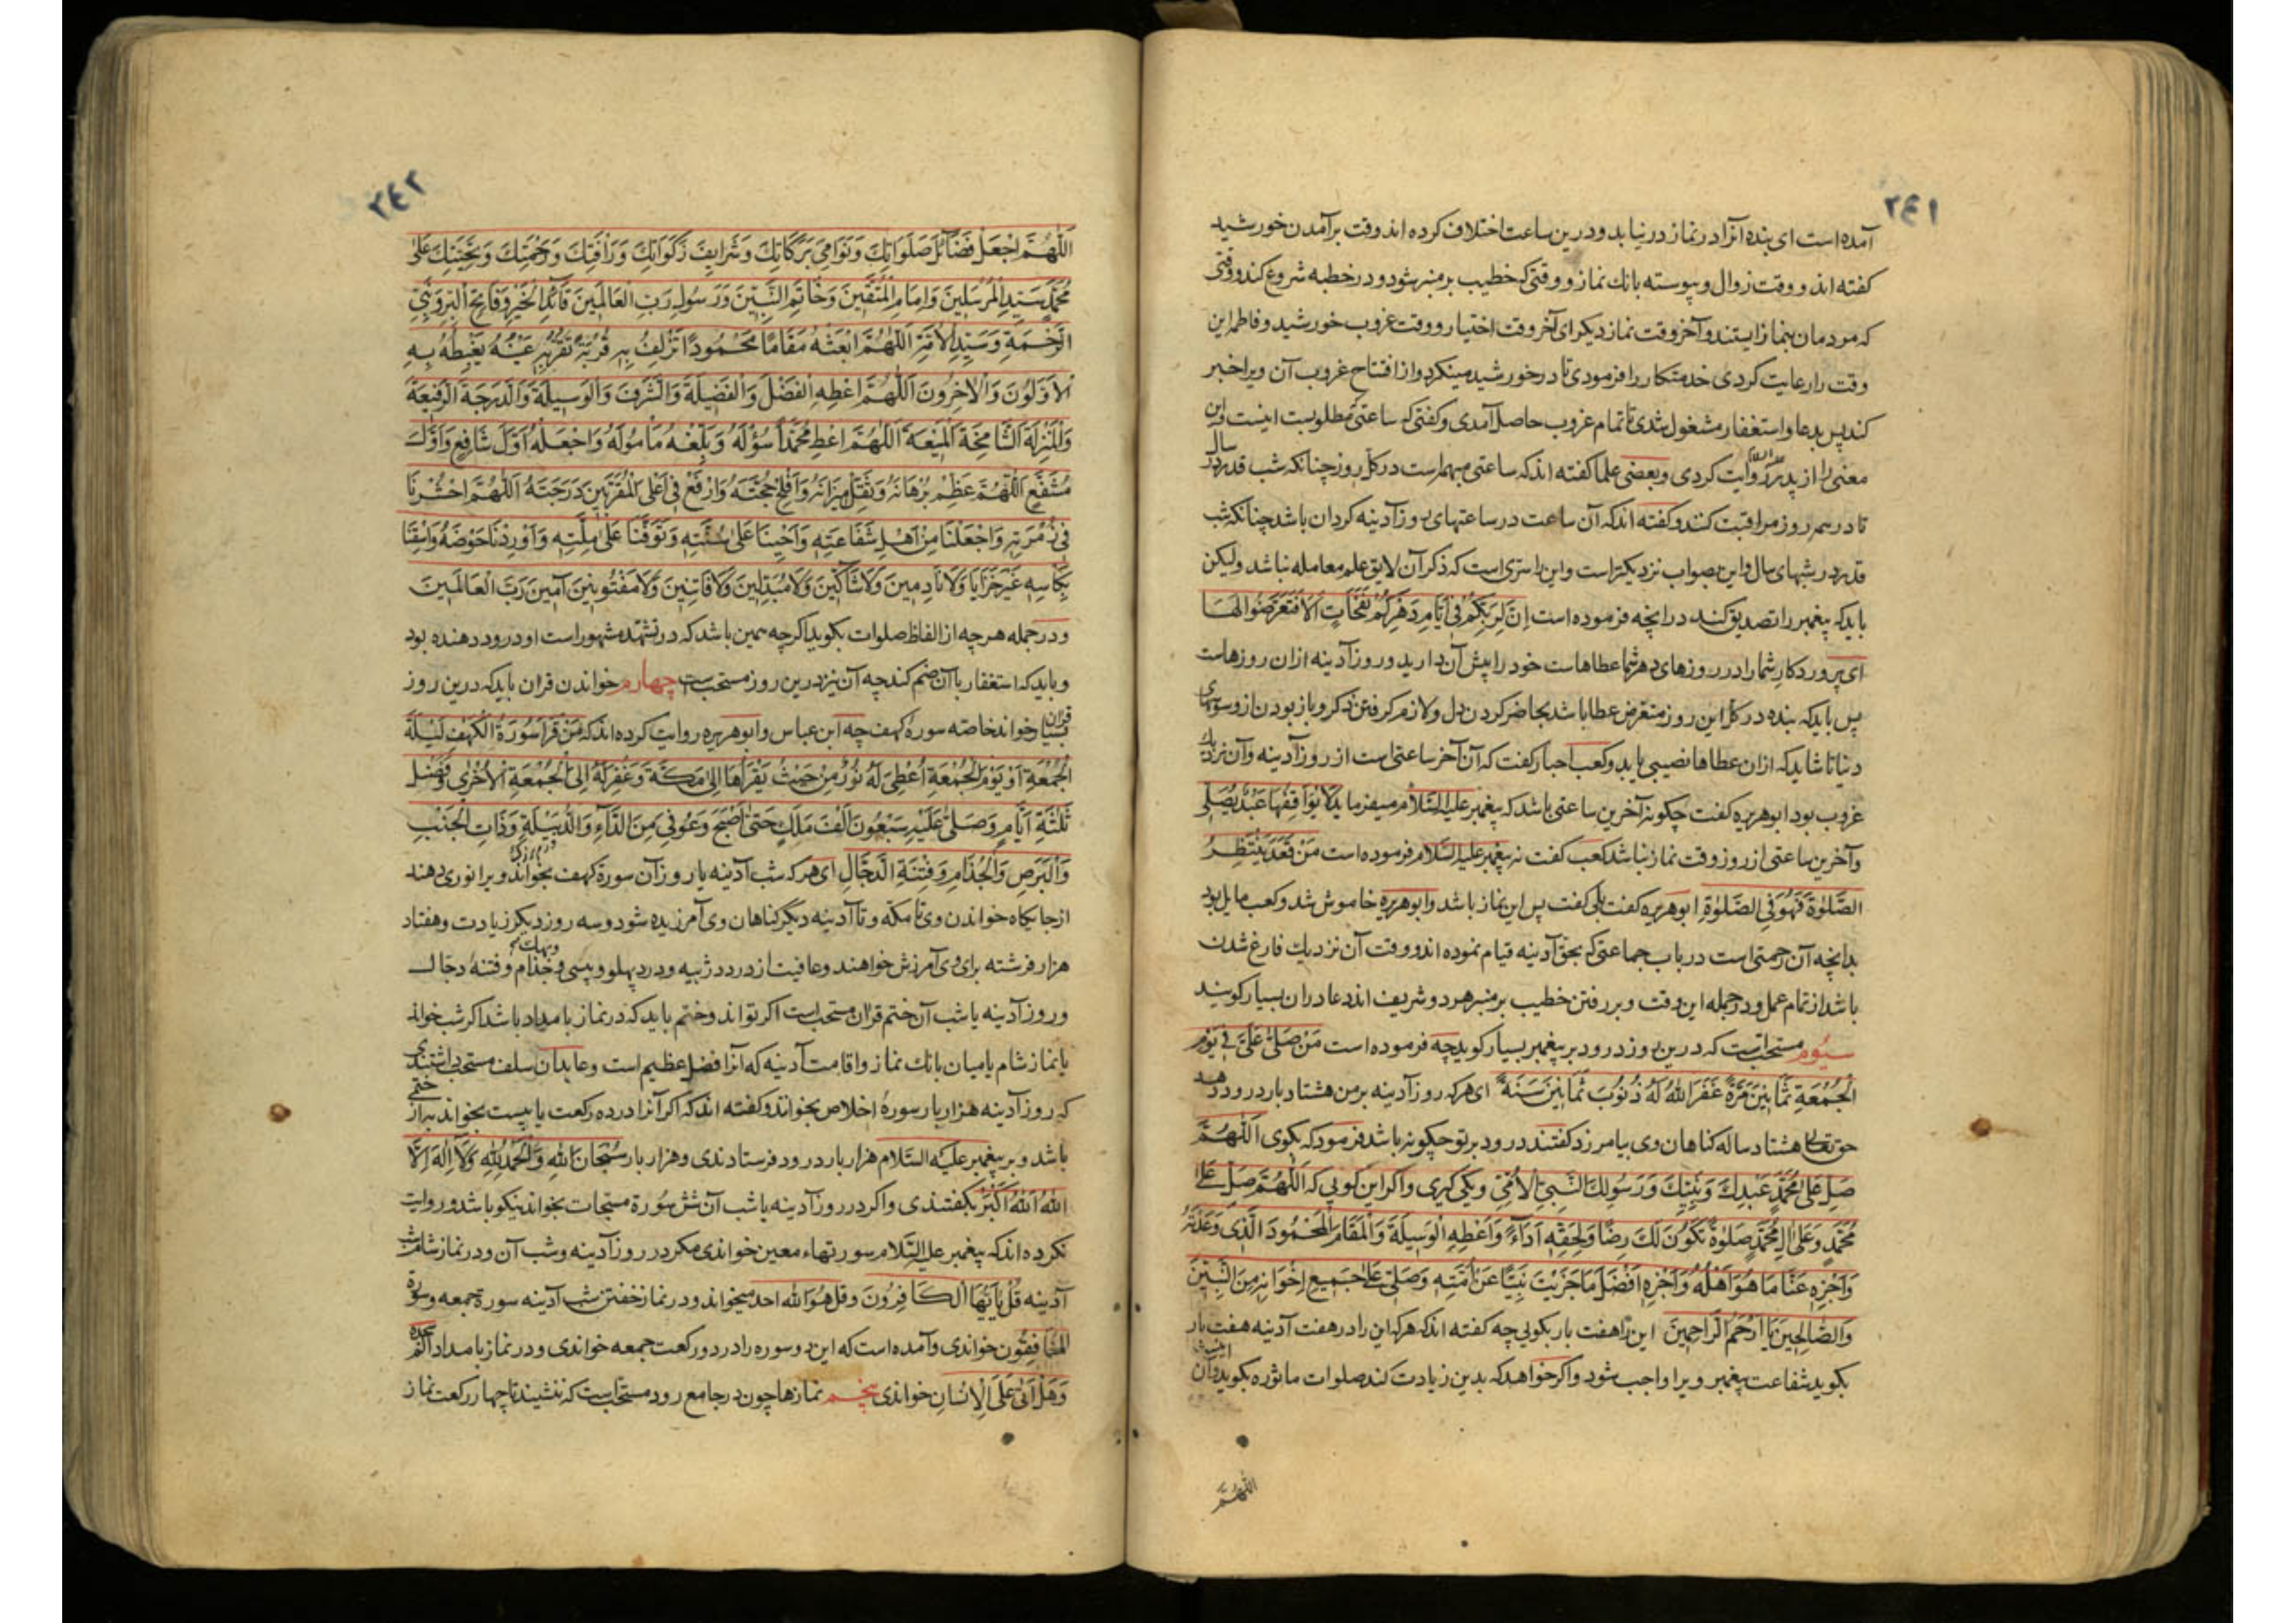 ٢٤١
آمده است ای بنده آنرا در نماز در نیابد و درین ساعت اختلاف کرده اند وقت برآمدن خورشید
کفته اند و وقت زوال و پیوسته بانك نماز و وقتی که خطیب بر منبر شود و در خطبه شروع کند و وقتی
که مردمان بنماز ایستند و آخر وقت نماز دیکر ای آخر وقت اختیار و وقت غروب خورشید و فاطمه این
وقت را رعایت کردی خدمتکار را فرمودی تا در خورشید مینکرد و از افتتاح غروب آن ویرا خبر
کند پس بدعا و استغفار مشغول شدی تا تمام غروب حاصل آمدی و کفتی که ساعتی مطلوبست اینست و این
معنی را از پدر روایت کردی و بعضی علما کفته اند که ساعتی مبهم است در کل روز چنانکه شب قدر در سال
تا در همه روز مراقبت کنند و کفته اند که آن ساعت در ساعتهای روز آدینه کردان باشد چنانکه شب
قدر در شبهای سال و این بصواب نزدیکتر است و این را سری است که ذکر آن لایق علم معامله نباشد ولیکن
باید که پیغمبر را تصدیق کند در انچه فرموده است اِنَّ لِرَبِّكُمْ فِی اَيَّامِ دَهْرِكُمْ نَفَحَاتٍ اَلَا فَتَعَرَّضُوا لَهَا
ای پروردکار شما را در روزهای دهر شما عطاهاست خود را پیش آن دارید و روز آدینه از ان روزهاست
پس باید که بنده در کل این روز متعرض عطا باشد بحاضر کردن دل و لازم کرفتن ذکر و باز بودن از وسوسهای
دنیا تا شاید که ازان عطاها نصیبی یابد و کعب احبار کفت که آن آخر ساعتی است از روز آدینه و آن نزدیك
غروب بود ابو هریره کفت چکونه آخرین ساعتی باشد که پیغمبر علیه السَّلام میفرماید لَا يُوَافِقُهَا عَبْدٌ يُصَلِّی
و آخرین ساعتی از روز وقت نماز نباشد کعب کفت نه پیغمبر علیه السَّلام فرموده است مَنْ قَعَدَ يَنْتَظِرُ
الصَّلٰوةَ فَهُوَ فِی الصَّلٰوةِ ابو هریره کفت بلی کفت پس این نماز باشد و ابو هریره خاموش شد و کعب مایل بود
بدانچه آن رحمتی است در باب جماعتی که بحق آدینه قیام نموده اند و وقت آن نزدیك فارغ شدن
باشد از تمام عمل و در جمله این وقت و بر رفتن خطیب بر منبر هر دو شریف اند دعا در ان بسیار کویند
سیّوم مستحب است که درین روز درود بر پیغمبر بسیار کوید چه فرموده است مَنْ صَلّٰی عَلَیَّ فِی يَوْمِ
الْجُمُعَةِ ثَمَانِينَ مَرَّةً غَفَرَ اللّٰهُ لَهُ ذُنُوبَ ثَمَانِينَ سَنَةً ای هر که روز آدینه بر من هشتاد بار درود دهد
حق تعالی هشتاد ساله کناهان وی بیامرزد کفتند درود بر تو چکونه باشد فرمود که بکوی اَللّٰهُمَّ
صَلِّ عَلٰی مُحَمَّدٍ عَبْدِكَ وَنَبِيِّكَ وَرَسُولِكَ النَّبِیِّ الْاُمِّیِّ و یکی کیری و اکر این کویی که اَللّٰهُمَّ صَلِّ عَلٰی
مُحَمَّدٍ وَعَلٰی اٰلِ مُحَمَّدٍ صَلٰوةً تَكُونُ لَكَ رِضًا وَلِحَقِّهِ اَدَاءً وَاَعْطِهِ الْوَسِيلَةَ وَالْمَقَامَ الْمَحْمُودَ الَّذِی وَعَدْتَهُ
وَاجْزِهِ عَنَّا مَا هُوَ اَهْلُهُ وَاجْزِهِ اَفْضَلَ مَا جَزَيْتَ نَبِيًّا عَنْ اُمَّتِهِ وَصَلِّ عَلٰی جَمِيعِ اِخْوَانِهِ مِنَ النَّبِيِّينَ
وَالصَّالِحِينَ يَا اَرْحَمَ الرَّاحِمِينَ این را هفت بار بکویی چه کفته اند که هر که این را در هفت آدینه هفت بار
بکوید شفاعت پیغمبر ویرا واجب شود و اکر خواهد که بدین زیادت کند صلوات ماثوره بکوید و آن اینست
اللّٰهُمَّ
٢٤٢
اَللّٰهُمَّ اجْعَلْ فَضَائِلَ صَلَوَاتِكَ وَنَوَامِیَ بَرَكَاتِكَ وَشَرَايِفَ زَكَوَاتِكَ وَرَاْفَتِكَ وَرَحْمَتِكَ وَتَحِيَّتِكَ عَلٰی
مُحَمَّدٍ سَيِّدِ الْمُرْسَلِينَ وَاِمَامِ الْمُتَّقِينَ وَخَاتِمِ النَّبِيِّينَ وَرَسُولِ رَبِّ الْعَالَمِينَ قَائِدِ الْخَيْرِ وَفَاتِحِ الْبِرِّ وَنَبِیِّ
الرَّحْمَةِ وَسَيِّدِ الْاُمَّةِ اَللّٰهُمَّ ابْعَثْهُ مَقَامًا مَحْمُودًا تُزْلِفُ بِهِ قُرْبَهُ وَتُقِرُّ بِهِ عَيْنَهُ يَغْبِطُهُ بِهِ
الْاَوَّلُونَ وَالْاٰخِرُونَ اَللّٰهُمَّ اَعْطِهِ الْفَضْلَ وَالْفَضِيلَةَ وَالشَّرَفَ وَالْوَسِيلَةَ وَالدَّرَجَةَ الرَّفِيعَةَ
وَالْمَنْزِلَةَ الشَّامِخَةَ الْمَنِيعَةَ اَللّٰهُمَّ اَعْطِ مُحَمَّدًا سُؤْلَهُ وَبَلِّغْهُ مَاْمُولَهُ وَاجْعَلْهُ اَوَّلَ شَافِعٍ وَاَوَّلَ
مُشَفَّعٍ اَللّٰهُمَّ عَظِّمْ بُرْهَانَهُ وَثَقِّلْ مِيزَانَهُ وَاَفْلِجْ حُجَّتَهُ وَارْفَعْ فِی اَعْلَی الْمُقَرَّبِينَ دَرَجَتَهُ اَللّٰهُمَّ احْشُرْنَا
فِی زُمْرَتِهِ وَاجْعَلْنَا مِنْ اَهْلِ شَفَاعَتِهِ وَاَحْيِنَا عَلٰی سُنَّتِهِ وَتَوَفَّنَا عَلٰی مِلَّتِهِ وَاَوْرِدْنَا حَوْضَهُ وَاسْقِنَا
بِكَاْسِهِ غَيْرَ خَزَايَا وَلَا نَادِمِينَ وَلَا شَاكِّينَ وَلَا مُبَدِّلِينَ وَلَا فَاتِنِينَ وَلَا مَفْتُونِينَ آمِينَ رَبَّ الْعَالَمِينَ
و در جمله هر چه از الفاظ صلوات بکوید اکر چه همین باشد که در تشهد مشهور است او درود دهنده بود
و باید که استغفار باآن ضم کند چه آن نیز درین روز مستحب است چهارم خواندن قران باید که درین روز
قران بسیار خواند خاصه سورهٔ کهف چه ابن عباس و ابو هریره روایت کرده اند که مَنْ قَرَاَ سُورَةَ الْكَهْفِ لَيْلَةَ
الْجُمُعَةِ اَوْ يَوْمَ الْجُمُعَةِ اُعْطِیَ لَهُ نُورٌ مِنْ حَيْثُ يَقْرَاُهَا اِلٰی مَكَّةَ وَغُفِرَ لَهُ اِلَی الْجُمُعَةِ الْاُخْرٰی وَفَضْلَ
ثَلٰثَةِ اَيَّامٍ وَصَلّٰی عَلَيْهِ سَبْعُونَ اَلْفَ مَلَكٍ حَتّٰی اَصْبَحَ وَعُوفِیَ مِنَ الدَّاءِ وَالدُّبَيْلَةِ وَذَاتِ الْجَنْبِ
وَالْبَرَصِ وَالْجُذَامِ وَفِتْنَةِ الدَّجَّالِ ای هر که شب آدینه یا روز آن سورهٔ کهف بخواند ویرا نوری دهند
از جایکاه خواندن وی تا مکه و تا آدینه دیگر کناهان وی آمرزیده شود و سه روز دیکر زیادت و هفتاد
هزار فرشته برای وی آمرزش خواهند و عافیت از درد و ژبیه و درد پهلو و پیسی و جذام و فتنهٔ دجال
و روز آدینه یا شب آن ختم قران مستحب است اکر تواند و ختم باید که در نماز بامداد باشد اکر شب خواند
یا نماز شام یا میان بانك نماز و اقامت آدینه که آنرا فضل عظیم است و عابدان سلف مستحب داشتندی
که روز آدینه هزار بار سورهٔ اخلاص بخواند و کفته اند که اکر آنرا در ده رکعت یا بیست بخواند به از ختمی
باشد و بر پیغمبر علیه السَّلام هزار بار درود فرستادندی و هزار بار سُبْحَانَ اللّٰهِ وَالْحَمْدُ لِلّٰهِ وَلَا اِلٰهَ اِلَّا
اللّٰهُ اَللّٰهُ اَكْبَرُ بکفتندی و اکر در روز آدینه یا شب آن شش سورة مسبحات بخواند نیکو باشد و روایت
نکرده اند که پیغمبر علیه السَّلام سورتهاء معین خواندی مکر در روز آدینه و شب آن و در نماز شام شب
آدینه قُلْ يَا اَيُّهَا الْكَافِرُونَ و قل هُوَ الله احد میخواند و در نماز خفتن شب آدینه سورهٔ جمعه و سورة
المُنَافِقُون خواندی و آمده است که این دو سوره را در دو رکعت جمعه خواندی و در نماز بامداد الم سجده
وَهَلْ اَتٰی عَلَی الْاِنْسَانِ خواندی پنجم نمازها چون در جامع رود مستحب است که ننشیند تا چهار رکعت نماز